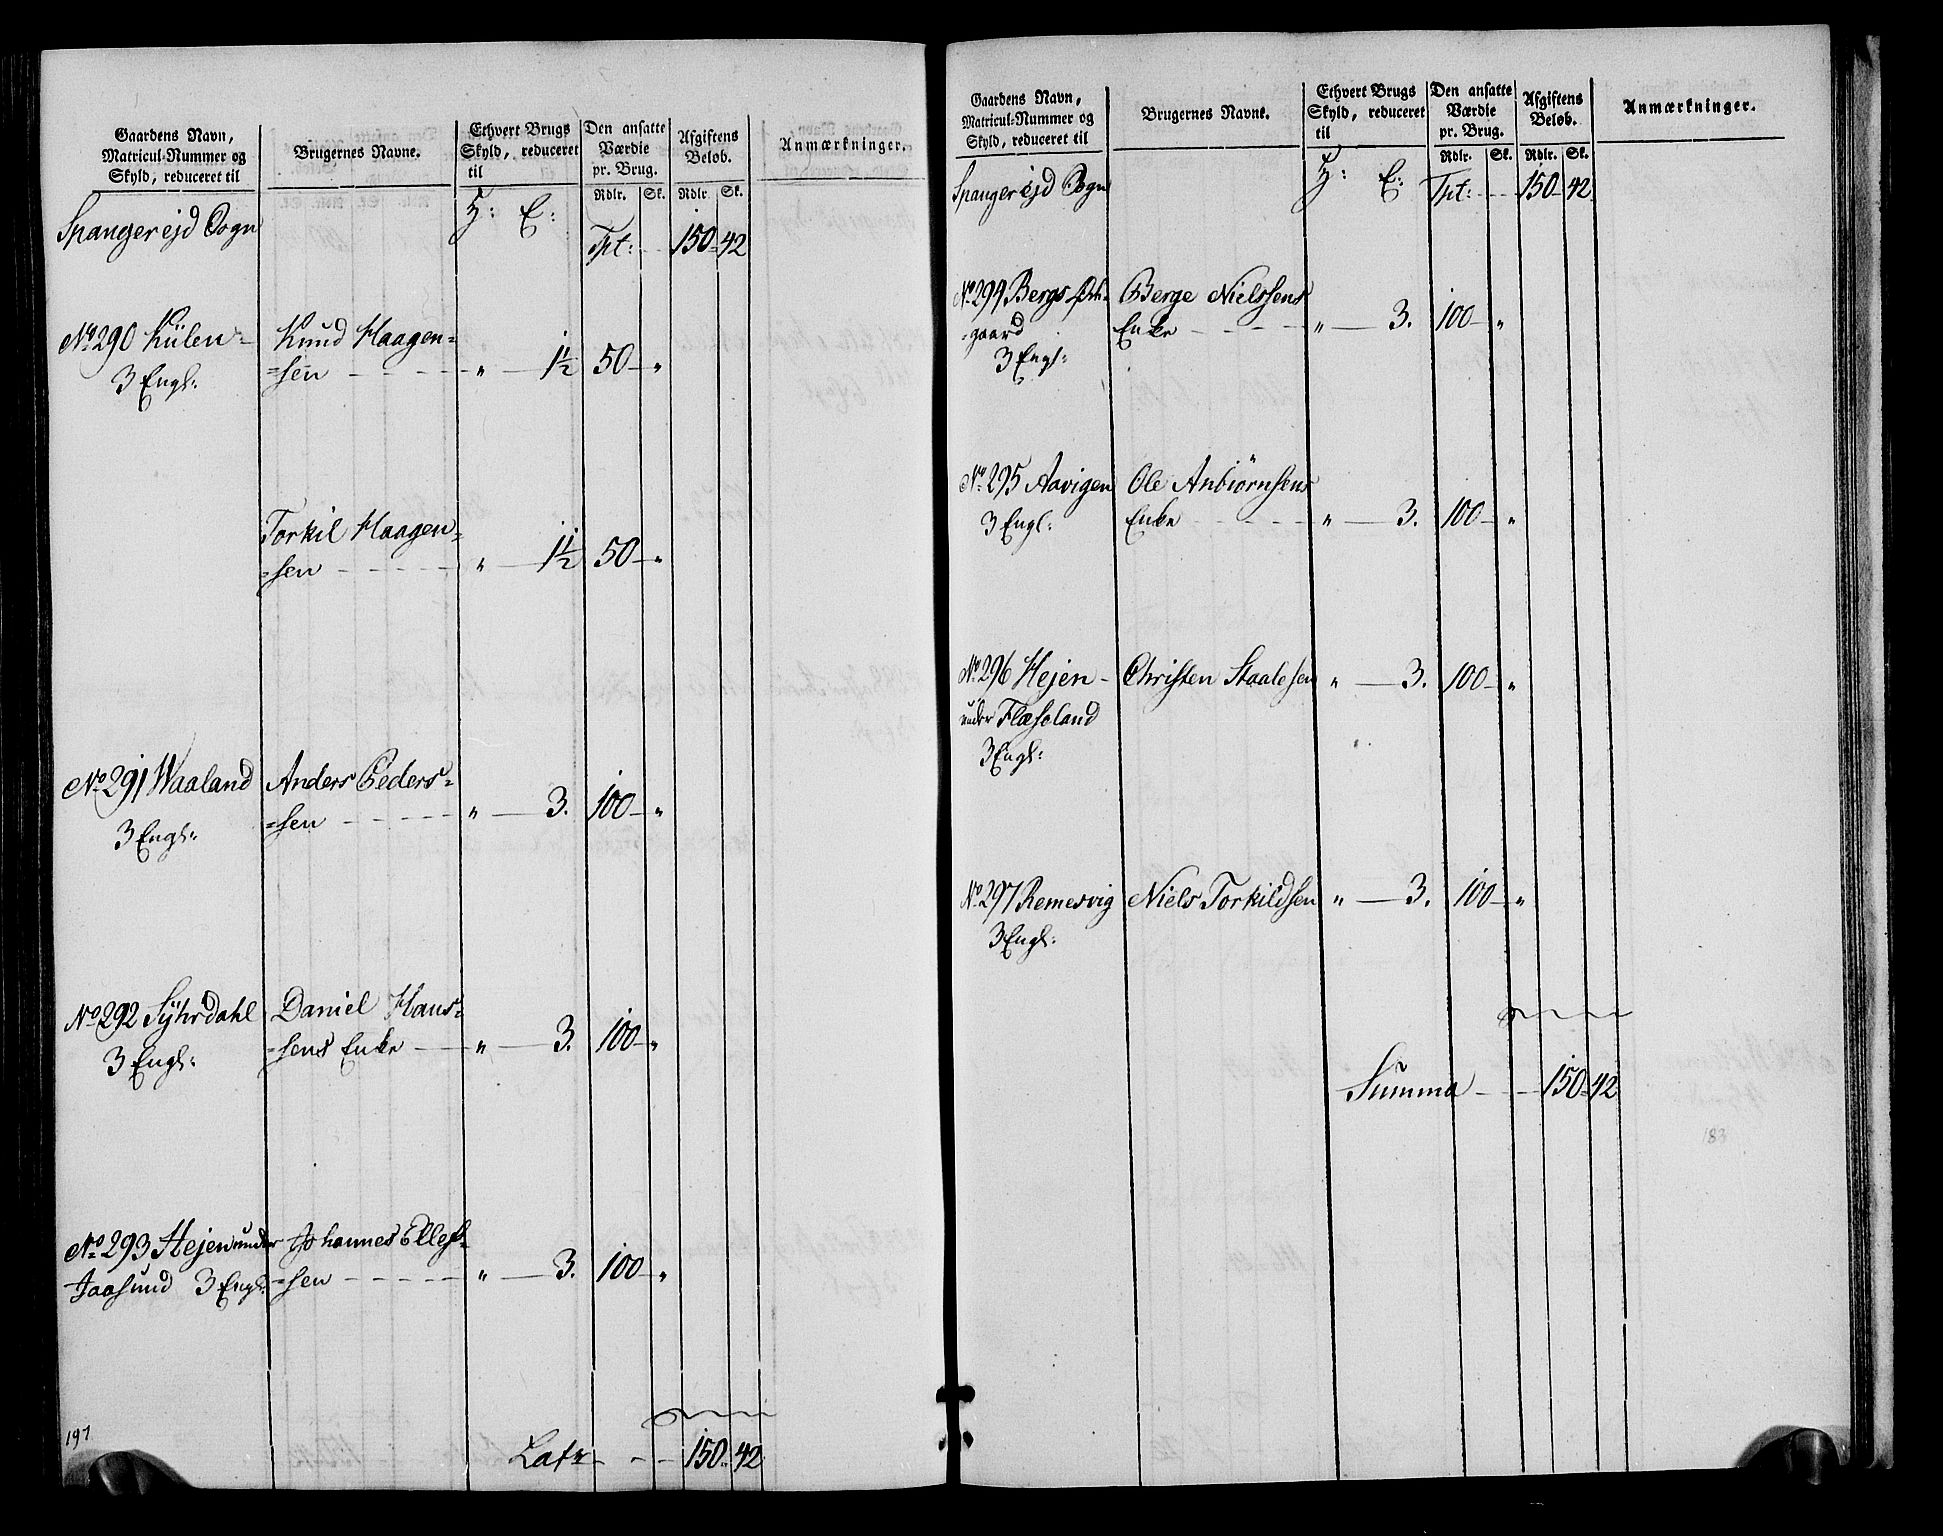 Gaardens Navn, Matricul-Nummer og Skyld, reduceret til | Brugernes Navne. | Ethvert Brugs Skyld, reduceret til | Den ansatte Værdie pr. Brug. | Afgiftens Beløb. | Anmærkninger.
Rdlr. Sk. Rdlr Sk.
Spangerejd Sogn H: E: Tpt: 150-42
No 290 Külen- Knud Haagen=
3 Engl: =sen " 1½ 50 "
Torkil Haagen=
=sen " 1½ 50 "
No 291 Waaland Anders Peders=
3 Engl: =sen " 3. 100 "
No 292 Syhrdahl Daniel Hans=
3 Engl: =sens Enke " 3. 100 "
No 293 Hejen under Johannes Ellef=
Jaasund 3 Engl: =sen " 3. 100 "
197
Latr 150-42
Gaardens Navn, Matricul-Nummer og Skyld, reduceret til | Brugernes Navne. | Ethvert Brugs Skyld, reduceret til | Den ansatte Værdie pr. Brug. | Afgiftens Beløb. | Anmærkninger.
Rdlr. Sk. Rdlr. Sk.
Spangerejd Sogn H: E: Tpt: 150-42
No 294 Bergs Øde- Berge Nielssens
=gaard Enke " 3. 100 "
3 Engl:
No 295 Aavigen Ole Anbiörnsens
3 Engl: Enke " 3. 100 "
No 296 Hejen- Christen Staalesen " 3. 100 "
under Flæseland
3 Engl:
No 297 Remesvig Niels Torkildsen " 3. 100 "
3 Engl:
Summa 150-42
183